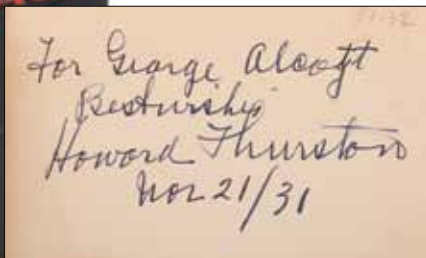 For George Alcott
Bestwishes
Howard Thurston
Nov 21/31